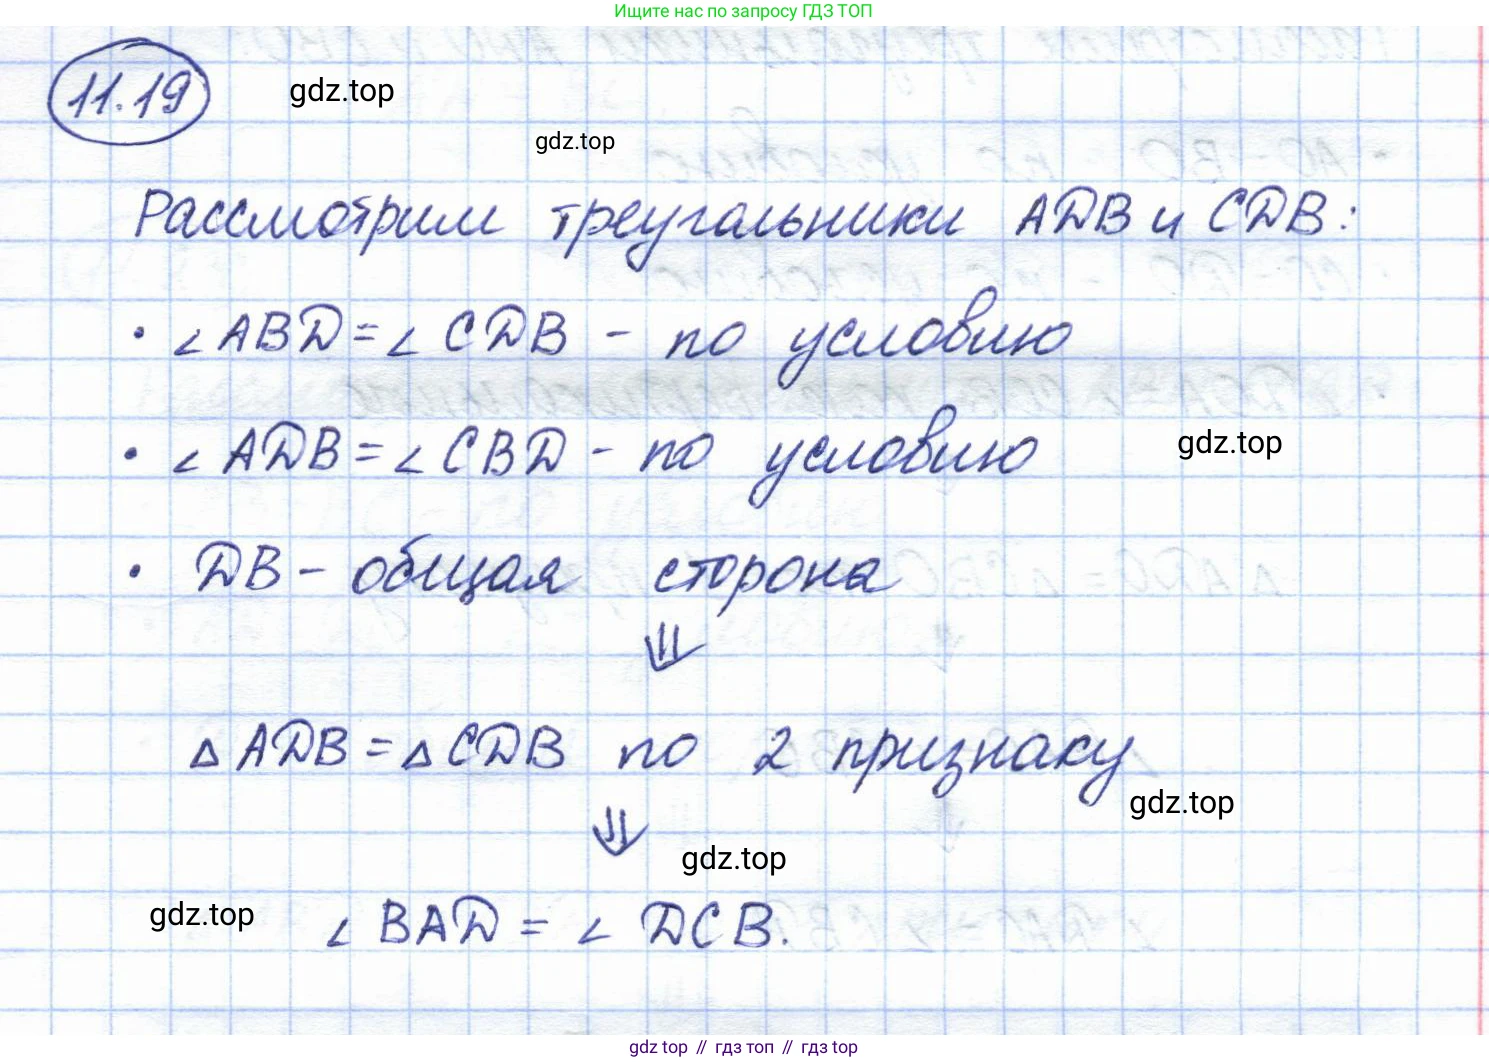 Ищите нас по запросу ГДЗ ТОП
11.19
gdz.top
gdz.top
Рассмотрим треугольники ADB и CDB:
· ∠ABD = ∠CDB - по условию
· ∠ADB = ∠CBD - по условию
gdz.top
· DB - общая сторона
⇓
△ADB = △CDB по 2 признаку
gdz.top
⇓
gdz.top
gdz.top
∠BAD = ∠DCB.
gdz top // гдз топ // гдз.top